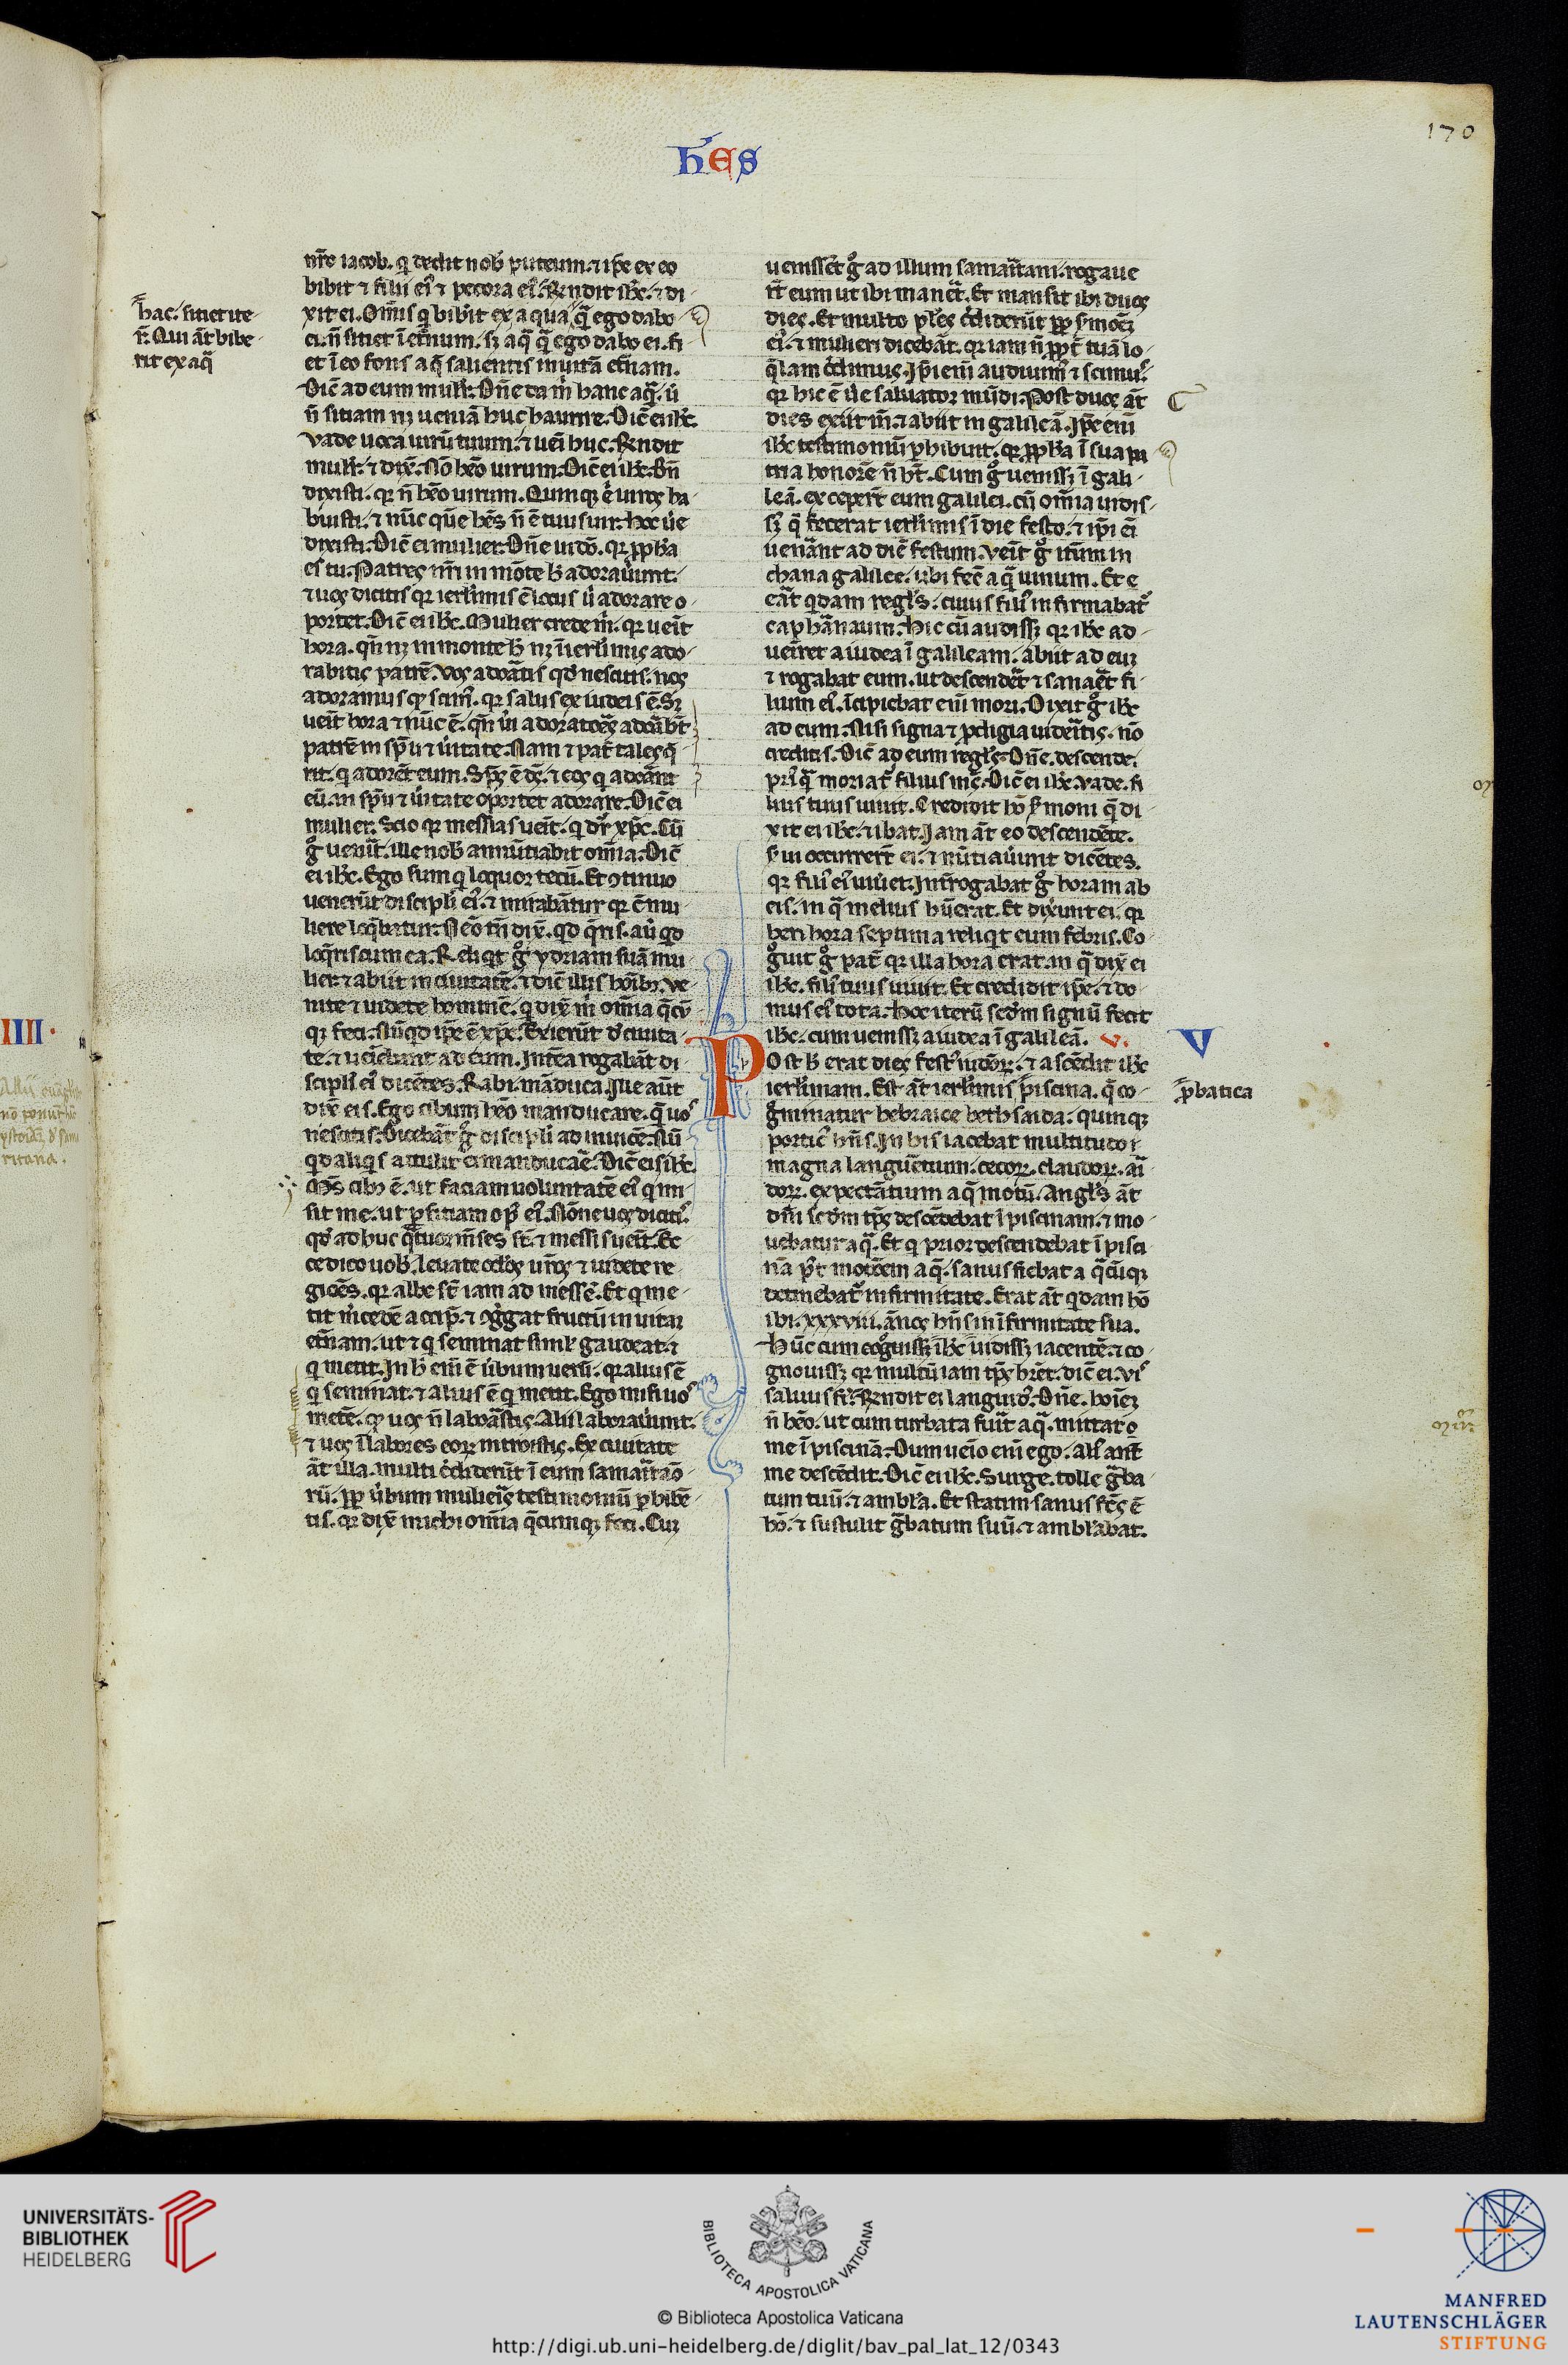 170
hEs
nr̄o iacob. q dedit nob̄ puteum. ⁊ ip̄e ex eo
bibit ⁊ filii ei᷒ ⁊ pecora ei᷒. R̄ndit ih̄c. ⁊ di-
xit ei. Om̄is q bibit ex aqua q̄ ego dabo
ei. n̄ sitiet ī et̄num. sꝫ aq̄ q̄ ego dabo ei. fi-
et ī eo fons aq̄ salientis in uitā et̄nam.
Dic̄ ad eum mulr̄. Dn̄e da m̄ hanc aq̄. ū
n̄ sitiam nꝫ ueniā huc haurire. Dic̄ ei ih̄c.
Vade uoca uirū tuum. ⁊ ueni huc. R̄ndit
mulr̄. ⁊ dix̄. Nō h̄eo uirum. Dic̄ ei ih̄c. Bn̄
dixisti. qꝛ n̄ h̄eo uirum. Quinqꝫ ē uiros ha-
buisti. ⁊ nūc que h̄es n̄ ē tuus uir. Hoc ūe
dixisti. Dic̄ ei mulier. Dn̄e uideō. qꝛ ꝓph̄a
es tu. Patres nr̄i in mōte h̄ adorauerunt.
⁊ uos dicitis qꝛ ierlīmis ē locus ū adorare o-
portet. Dic̄ ei ih̄c. Mulier crede m̄. qꝛ ueīt
hora. qn̄ nꝫ in monte h̄ nꝫ ī ierlīmis ado-
rabitis patrē. Vos adoratis qd̄ nescitis. nos
adoramus qd̄ scim᷒. qꝛ salus ex iudeis ē. Sꝫ
ueīt hora ⁊ nūc ē. qn̄ ūi adoratores adorabt̄
patrē in sp̄u ⁊ ūitate. Nam ⁊ pat̄ tales q̄-
rit. q adorēt eum. Sp̄s ē ds̄. ⁊ eos q adorant
eū. in sp̄u ⁊ ūitate oportet adorare. Dic̄ ei
mulier. Scio qꝛ messias ueīt. q dr̄ xp̄c. Cū
g̊ uen̄it. ille nob̄ annūtiabit om̄ia. Dic̄
ei ih̄c. Ego sum q loquor tecū. Et ꝯtinuo
uenerūt discipli ei᷒. ⁊ mirabātur qꝛ c̄ mu-
liere loq̄batur. Nēo tn̄ dix̄. qd̄ q̄ris. aū qd̄
loq̄ris cum ea. Reliqt g̊ ydriam suā mu-
lier. ⁊ abiit in ciuitatē. ⁊ dic̄ illis hōibꝫ. Ve-
nite ⁊ uidete hominē. q dix̄ m̄ om̄ia q̄cū-
qꝫ feci. Nūqd ip̄e ē xp̄c. Exierūt d̄ ciuita-
te. ⁊ ueniebant ad eum. Intēa rogabāt di-
scipli ei᷒ dicētes. Rabi. māduca. Ille aūt
dix̄ eis. Ego cibum h̄eo manducare. q̄ uos
nescitis. Dicebāt g̊ discipli ad inuicē. Nū-
qd aliqs attulit ei manducare. Dic̄ eis ih̄c.
M̄s cib᷒ ē. ut faciam uoluntatē ei᷒ q mi-
sit me. ut ꝑficiam op᷒ ei᷒. Nōne uos dicitis
qd̄ adhuc q̄tuor m̄ses st̄. ⁊ messis ueīt. Ec-
ce dico uob̄. leuate oclos ur̄os ⁊ uidete re-
giōes. qꝛ albe st̄ iam ad messē. Et q me-
tit m̄cedē accip̄. ⁊ ꝯg̊gat fructū in uitaꝫ
et̄nam. ut ⁊ q seminat siml̄ gaudeat. ⁊
q metit. In h̄ eni ē ūbum uerū. qꝛ alius ē
q seminat. ⁊ alius ē q metit. Ego misi uos
metē. qd̄ uos n̄ laborastis. Alii laborauerunt.
⁊ uos ī labores eoꝝ introistis. Ex ciuitate
āt illa. multi c̄diderūt ī eum samaritano-
rū. ꝓp ūbum mulieris testimoniū ꝑhibē-
tis. qꝛ dix̄ michi om̄ia q̄cumqꝫ feci. Cuꝫ
hac. sitiet ite-
r̄. Qui āt bibe-
rit ex aq̄
uenissēt g̊ ad illum samaritani. rogaue-
rt̄ eum ut ibi manet̄. Et mansit ibi duos
dies. Et multo pl̄es c̄diderūt ꝓp s̄monē
ei᷒. ⁊ mulieri dicebāt. qꝛ iam n̄ ꝓpt̄ tuā lo-
q̄lam c̄dimus. Ip̄i eni audiuim᷒ ⁊ scimus.
qꝛ hic ē ūe saluator mūdi. Post duos āt
dies exiit in̄. ⁊ abiit in galileā. Ip̄e eni
ih̄c testimoniū ꝑhibuit. qꝛ ꝓph̄a ī sua pa-
tria honorē n̄ ht̄. Cum g̊ uenissꝫ ī gali-
leā. exceper̄t eum galilei. cū om̄ia uidis-
sꝫ q̄ fecerat ierlīmis ī die festo. ⁊ ip̄i eī
uenant ad diē festum. Veīt g̊ itūm in
chana galilee. ubi fec̄ aq̄ uinum. Et e-
rat qdam regl̄s. cuius fili᷒ infirmabat᷒
capharnaum. Hic cū audissꝫ qꝛ ih̄c ad-
ueniret a iudea ī galileam. abiit ad euꝫ
⁊ rogabat eum. ut descendet̄ ⁊ sanaret fi-
lium ei᷒. īcipiebat eni mori. Dixit g̊ ih̄c
ad eum. Nisi signa ⁊ ꝓdigia uideritis. nō
creditis. Dic̄ ad eum regl̄s. Dn̄e. descende.
pri᷒q̄ moriat᷒ filius m̄s. Dic̄ ei ih̄c. Vade. fi-
lius tuus uiuit. Credidit hō s̄moni q̄ di-
xit ei ih̄c. ⁊ ibat. Iam āt eo descendēte.
s̄ui occurrert̄ ei. ⁊ nūtiauerunt dicētes.
qꝛ fili᷒ ei᷒ uiuet. Int̄rogabat g̊ horam ab
eis. in q̄ melius hūerat. Et dixerunt ei. qꝛ
heri hora septima reliqt eum febris. Co-
g̊uit g̊ pat̄ qꝛ illa hora erat. in q̄ dix̄ ei
ih̄c. fili᷒ tuus uiuit. Et credidit ip̄e. ⁊ do-
mus ei᷒ tota. Hoc iterū scd̄m signū fecit
ih̄c. cum uenissꝫ a iudea ī galileā. V.
Post h̄ erat dies fest᷒ iudeoꝝ. ⁊ ascēdit ih̄c
ierlīmam. Est āt ierlīmis piscina. q̄ co-
g̊minatur hebraice bethsaida. quinqꝫ
portic᷒ hn̄s. In his iacebat multitudo
magna languētium. cecoꝝ. claudoꝝ. ari-
doꝝ. expectātium aq̄ motū. Angl̄s āt
dn̄i scd̄m tp̄s descēdebat ī piscinam. ⁊ mo-
uebatur aq̄. Et q prior descendebat ī pisci-
nā p᷒t motōem aq̄. sanus fiebat a q̄cūqꝫ
detinebat᷒ infirmitate. Erat āt qdam hō
ibi. xxxviii. ānos hn̄s in īfirmitate sua.
Hūc cum cog̊uissꝫ ih̄c uidissꝫ iacentē. ⁊ co-
gnouissꝫ qꝛ multū iam tp̄s h̄ret. dic̄ ei. Vis
saluus fi᷒i. R̄ndit ei languid᷒. Dn̄e. hōieꝫ
n̄ h̄eo. ut cum turbata fuit̄ aq̄. mittat
me ī piscinā. Dum uēio eni ego. ali᷒ ant̄
me descēdit. Dic̄ ei ih̄c. Surge. tolle g̊ba-
tum tuū. ⁊ ambl̄a. Et statim sanus fc̄s ē
hō. ⁊ sustulit g̊batum suū. ⁊ ambl̄abat.
V
ꝓbatica
IIII.
UNIVERSITÄTS-
BIBLIOTHEK
HEIDELBERG
BIBLIOTECA APOSTOLICA VATICANA
© Biblioteca Apostolica Vaticana
http://digi.ub.uni-heidelberg.de/diglit/bav_pal_lat_12/0343
MANFRED
LAUTENSCHLÄGER
STIFTUNG